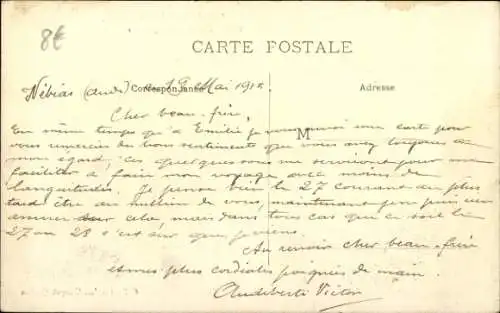 8€
CARTE POSTALE
Correspondance
Adresse
M
Nébias (Aude) 19 Mai 191
Cher beau-frère,
En même temps qu'à Emilie je une carte pour
vous remercier des bons sentiments que vous avez toujours à
mon égard, ces quelques sous me serviront pour me
faciliter à faire mon voyage avec moins de
Je pense bien le 27 courant au plus
tard être au milieu de vous, maintenant
sur cela mais dans tous cas que ce soit le
27 ou 28 c'est sûr que je viens.
Au revoir cher beau-frère
et mes plus cordiales poignées de main.
Audiberte Victor